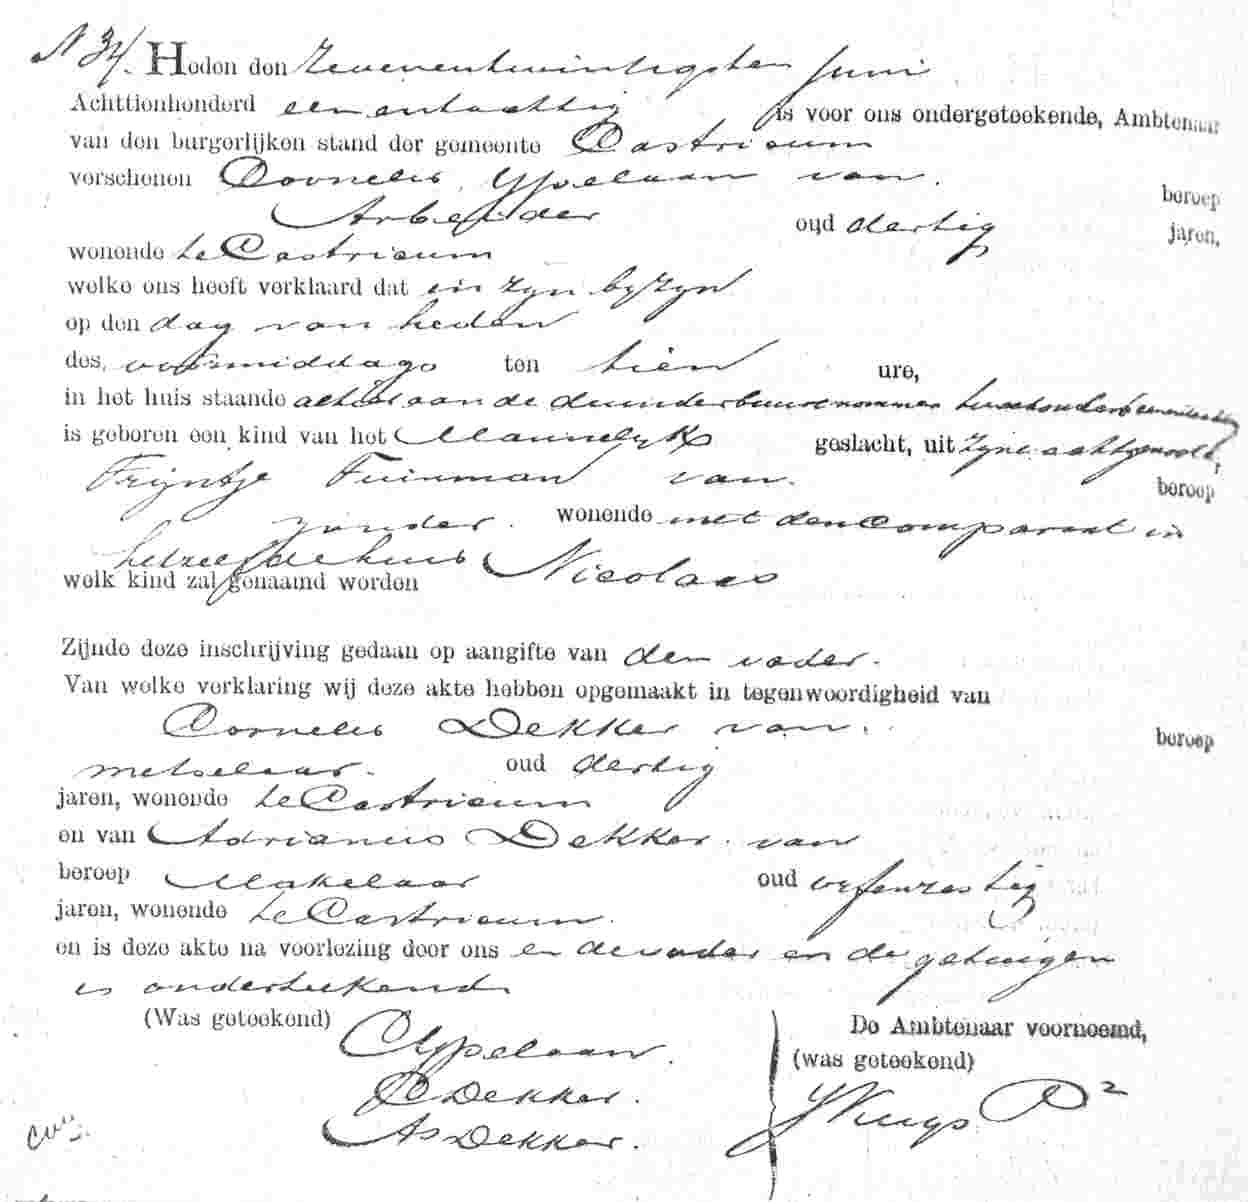 N 34. Heden den zevenentwintigsten Juni
Achttienhonderd eenentachtig is voor ons ondergeteekende, Ambtenaar
van den burgerlijken stand der gemeente Castricum
verschenen Cornelis Ypelaan van beroep
Arbeider oud dertig jaren,
wonende te Castricum
welke ons heeft verklaard dat in zyn byzyn
op den dag van heden
des voormiddags ten tien ure,
in het huis staande alhier aan de buurt nommer tweehonderd eenentachtig
is geboren een kind van het Mannelyk geslacht, uit zyne echtgenoote,
Trijntje Tuinman van beroep
zonder wonende met den Comparant in
hetzelfde huis
welk kind zal genaamd worden Nicolaas
Zijnde deze inschrijving gedaan op aangifte van den vader.
Van welke verklaring wij deze akte hebben opgemaakt in tegenwoordigheid van
Cornelis Dekker van beroep
metselaar oud dertig
jaren, wonende te Castricum
en van Adrianus Dekker van
beroep Makelaar oud vyfenzestig
jaren, wonende te Castricum.
en is deze akte na voorlezing door ons en de vader en de getuigen
is onderteekend
(Was geteekend) De Ambtenaar voornoemd,
C Ypelaan. (was geteekend)
C Dekker.
As Dekker.